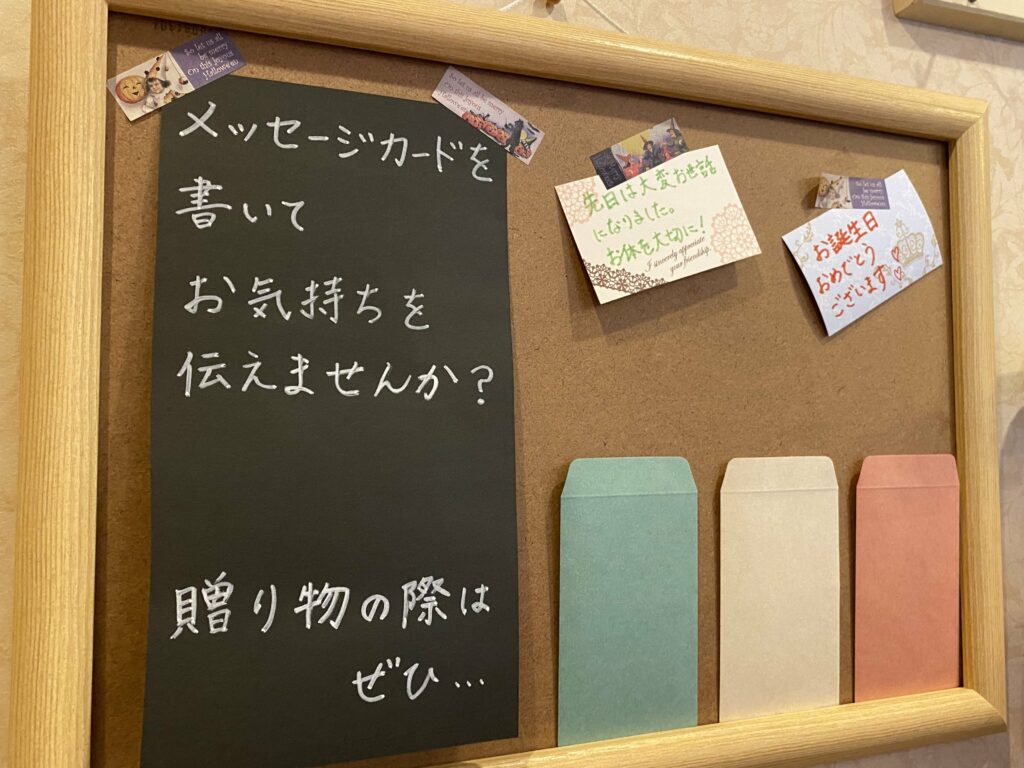 So let us all
be merry
On this Joyous
Halloween
メッセージカードを
書いて
お気持ちを
伝えませんか?
贈り物の際は
ぜひ…
先日は大変お世話
になりました。
お体を大切に!
I sincerely appreciate
your friendship.
So let us all
be merry
On this Joyous
Halloween
お誕生日
おめでとう
ございます♡♡